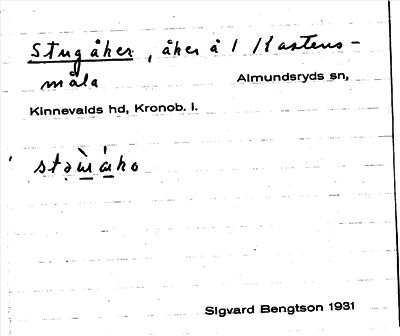 Stugåker, åker å 1 Hastens-
måla Almundsryds sn,
Kinnevalds hd, Kronob. l.
Sigvard Bengtson 1931